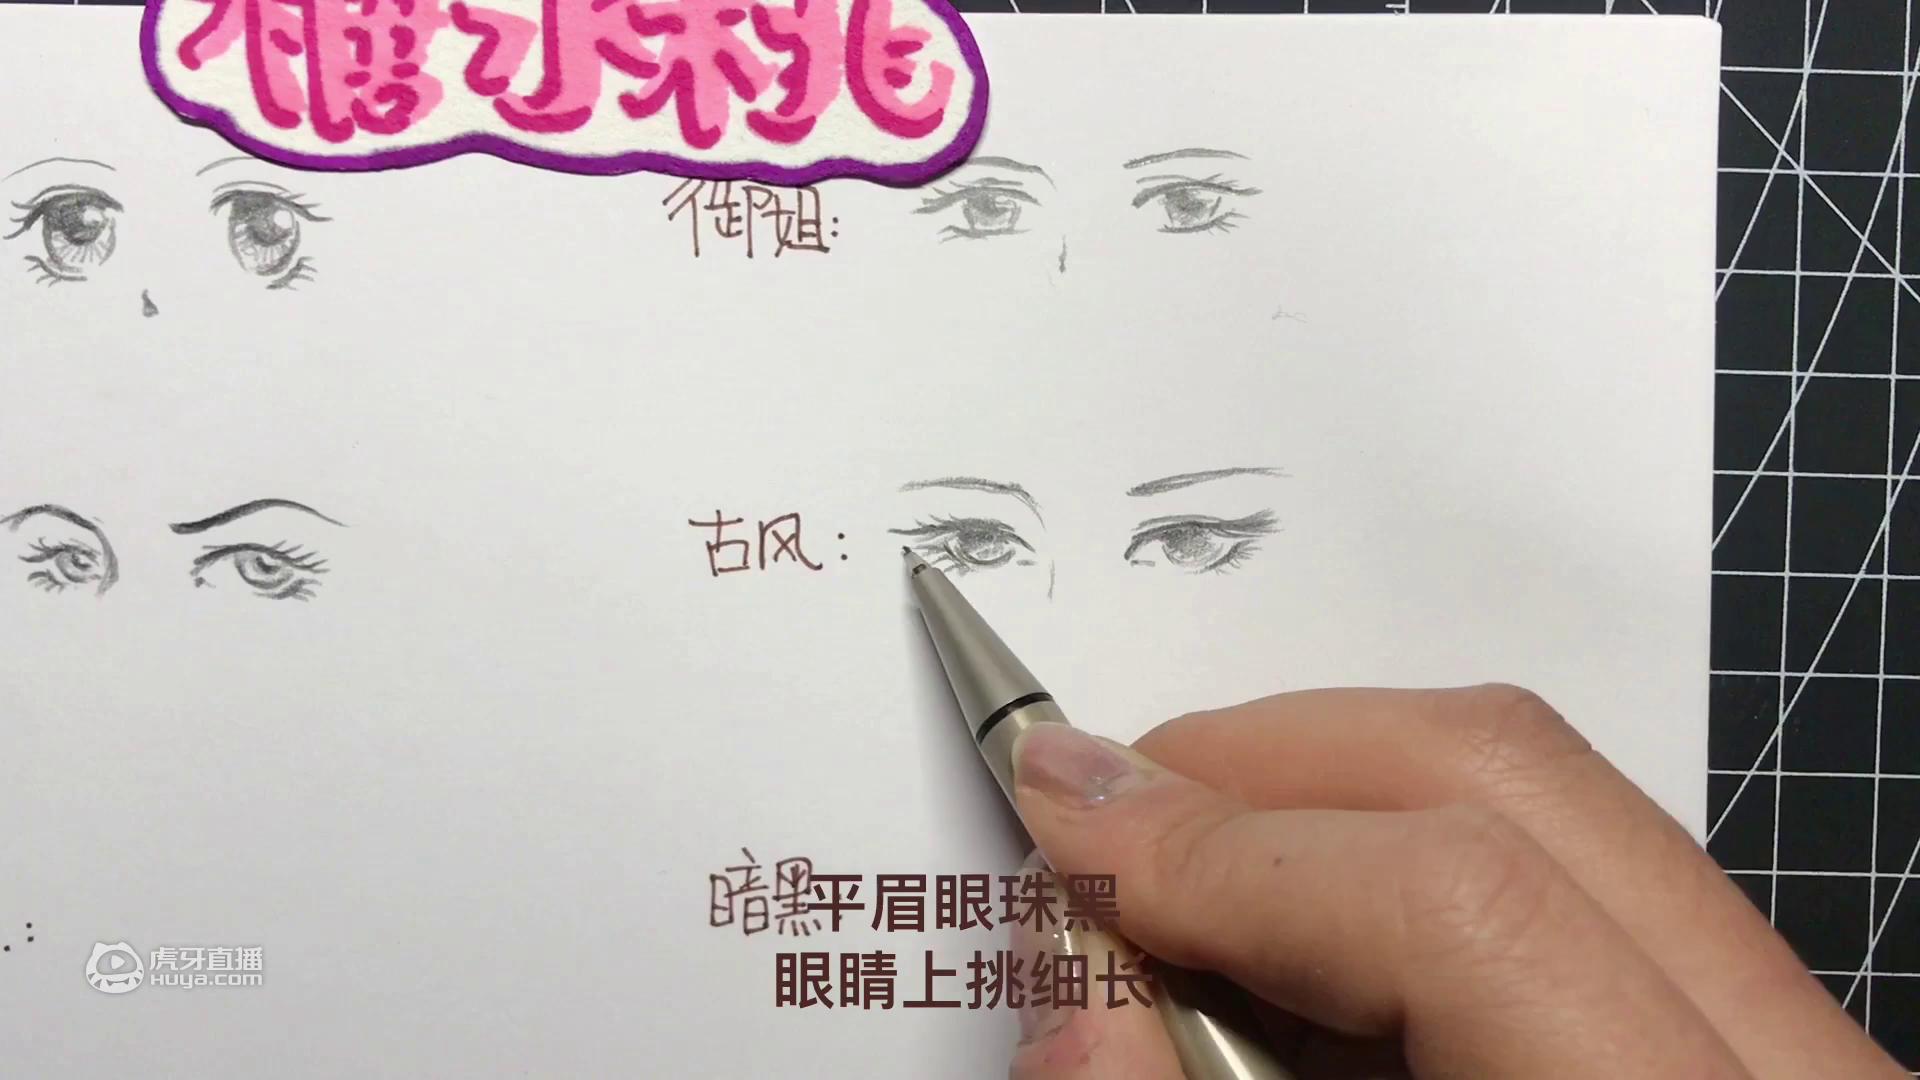 糖水朱挑
御姐:
古风:
暗黑
平眉眼珠黑
眼睛上挑细长
虎牙直播
HUYA.com